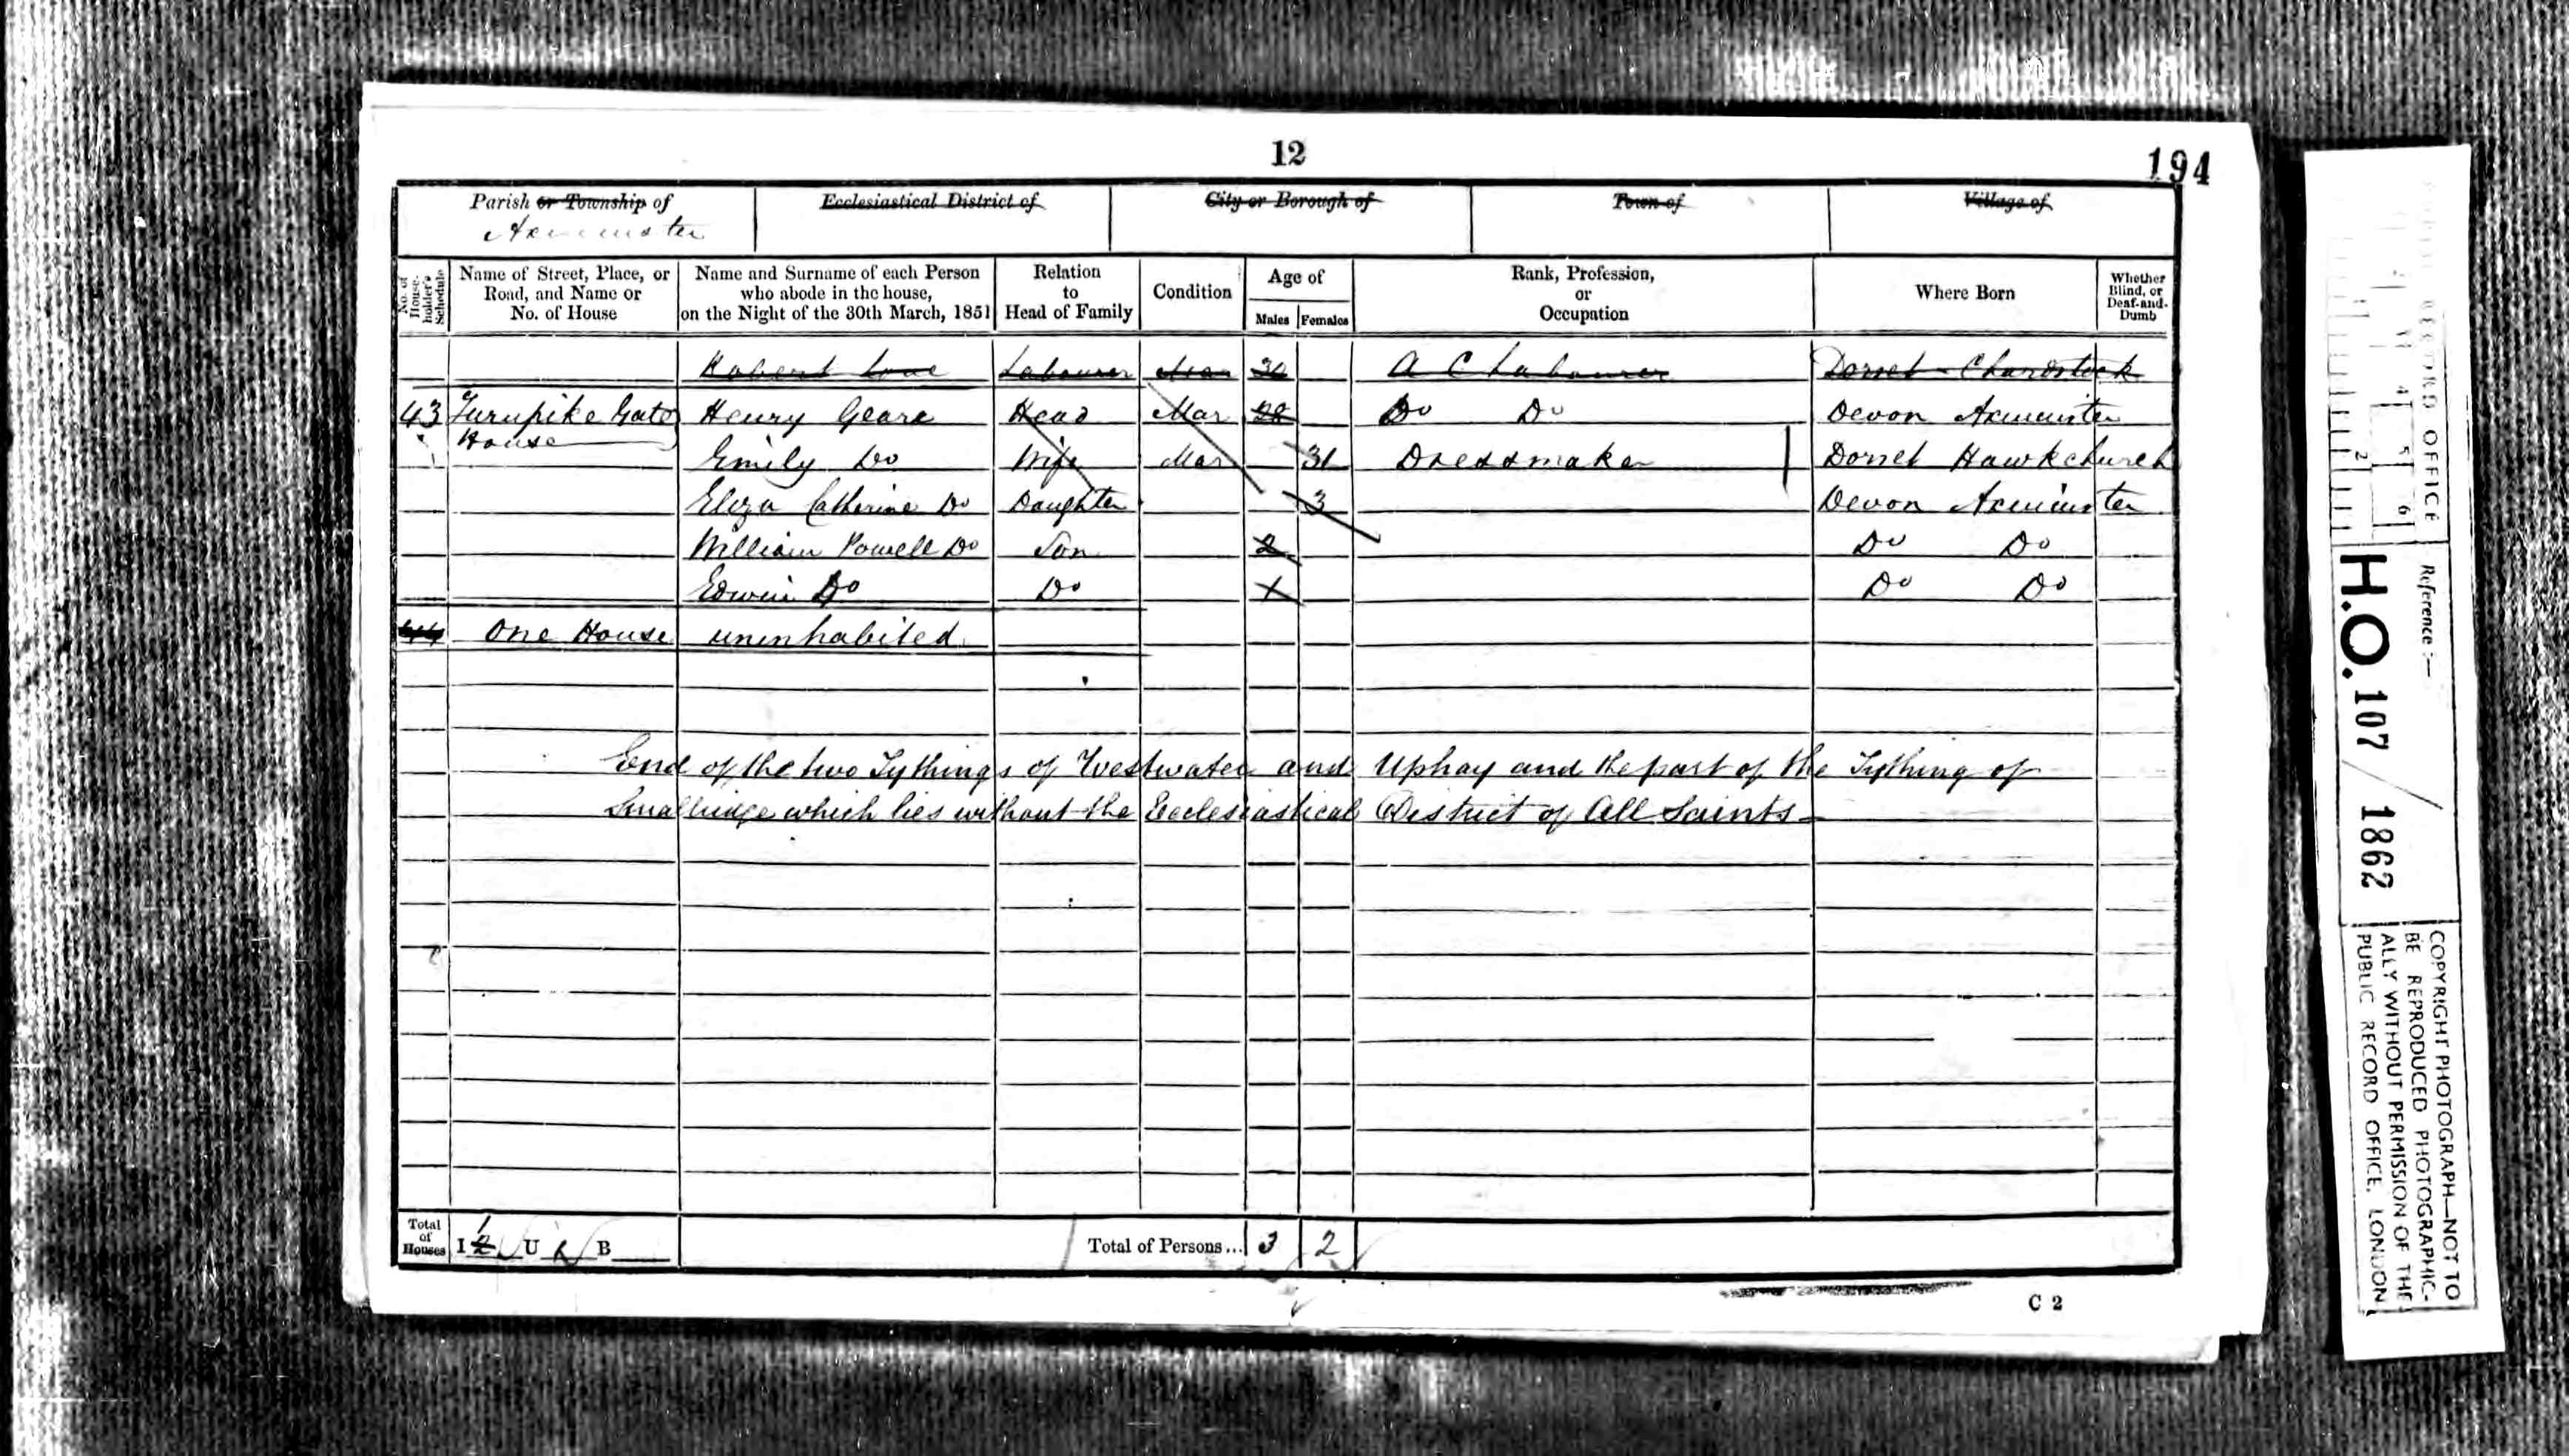 12
194
Parish or Township of
Axminster
Ecclesiastical District of
City or Borough of
Town of
Village of
No. of House-holder's Schedule
Name of Street, Place, or Road, and Name or No. of House
Name and Surname of each Person who abode in the house, on the Night of the 30th March, 1851
Relation to Head of Family
Condition
Age of
Males Females
Rank, Profession, or Occupation
Where Born
Whether Blind, or Deaf-and-Dumb
Robert Love Labourer 30 A C Labourer Dorset Chardstock
43 Turnpike Gate House Henry Geare Head Mar 28 Do Do Devon Axminster
Emily Do Wife Mar 31 Dressmaker Dorset Hawkchurch
Eliza Catherine Do Daughter 3 Devon Axminster
William Powell Do Son 2 Do Do
Edwin Do Do 1 Do Do
44 One House uninhabited
End of the two Tythings of Westwater and Uphay and the part of the Tything of
Smallridge which lies without the Ecclesiastical District of All Saints
Total of Houses I 1 2 U B
Total of Persons... 3 2
C 2
RECORD OFFICE
Reference :—
H.O. 107 / 1862
COPYRIGHT PHOTOGRAPH—NOT TO
BE REPRODUCED PHOTOGRAPHIC-
ALLY WITHOUT PERMISSION OF THE
PUBLIC RECORD OFFICE, LONDON